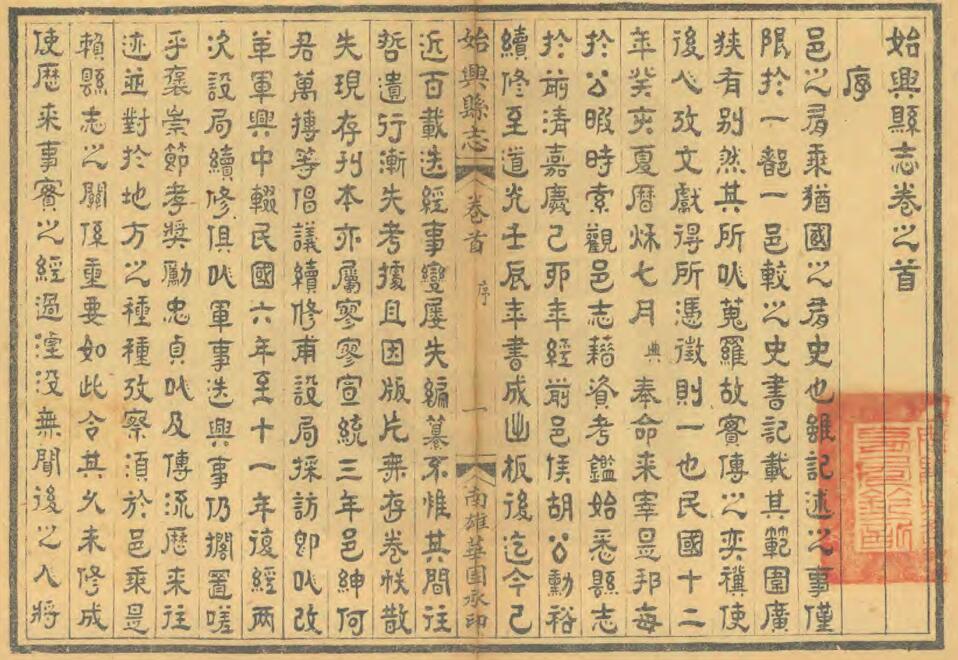 始興縣志卷之首
序
邑之有乘猶國之有史也雖記述之事僅
限於一郡一邑較之史書記載其範圍廣
狹有別然其所以蒐羅故實傳之奕禩使
後人攷文獻得所憑徵則一也民國十二
年癸亥夏曆秌七月典奉命来宰是邦每
於公暇時索觀邑志藉資考鑑始悉縣志
於前清嘉慶己卯年經前邑侯胡公勳裕
續修至道光壬辰年書成出板後迄今已
始興縣志 卷首 序 一 南雄華國承印
近百載迭經事變屢失編纂不惟其間往
哲遺行漸失考據且因版片無存卷帙散
失現存刊本亦屬寥寥宣統三年邑紳何
君萬摶等倡議續修甫設局採訪卽以改
革軍興中輟民國六年至十一年復經兩
次設局續修俱以軍事迭興事仍擱置嗟
乎褒崇節孝奬勵忠貞以及傳流歷来往
迹並對於地方之種種攷察須於邑乘是
賴縣志之關係重要如此令其久未修成
使歷来事實之經過湮没無聞後之人將